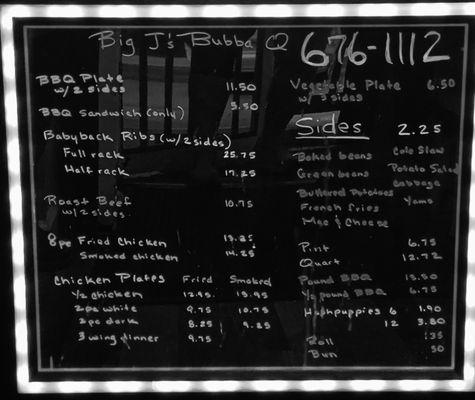 Big J's Bubba Q 676-1112
BBQ Plate 11.50
w/ 2 sides
BBQ Sandwich (only) 5.50
Babyback Ribs (w/ 2 sides)
Full rack 25.75
Half rack 17.25
Roast Beef 10.75
w/ 2 sides
8pc Fried Chicken 13.25
Smoked chicken 14.25
Chicken Plates Fried Smoked
1/2 chicken 12.95 13.95
2pc white 9.75 10.75
2pc dark 8.25 9.25
3 wing dinner 9.75
Vegetable Plate 6.50
w/ 3 sides
Sides 2.25
Baked beans Cole Slaw
Green beans Potato Salad
Buttered Potatoes Cabbage
French fries Yams
Mac & Cheese
Pint 6.75
Quart 12.72
Pound BBQ 13.50
1/2 pound BBQ 6.75
Hushpuppies 6 1.90
12 3.80
Roll .35
Bun .50